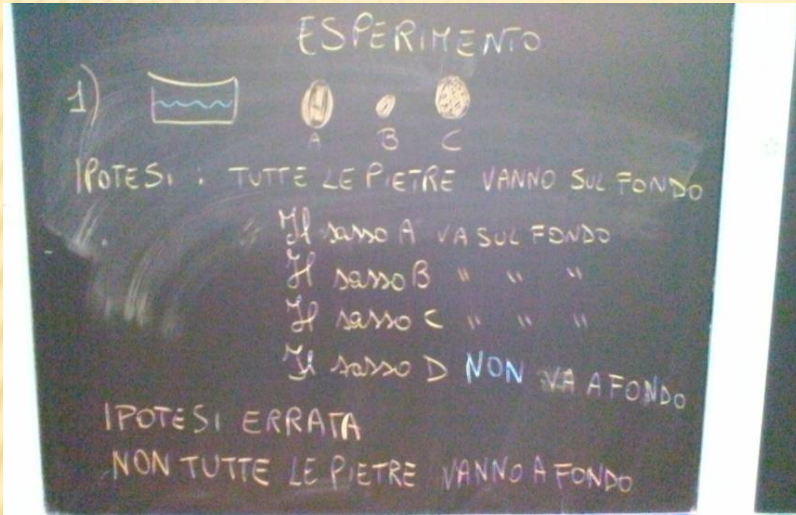 ESPERIMENTO
1)
A B C
IPOTESI : TUTTE LE PIETRE VANNO SUL FONDO
Il sasso A VA SUL FONDO
Il sasso B " " "
Il sasso C " " "
Il sasso D NON VA A FONDO
IPOTESI ERRATA
NON TUTTE LE PIETRE VANNO A FONDO